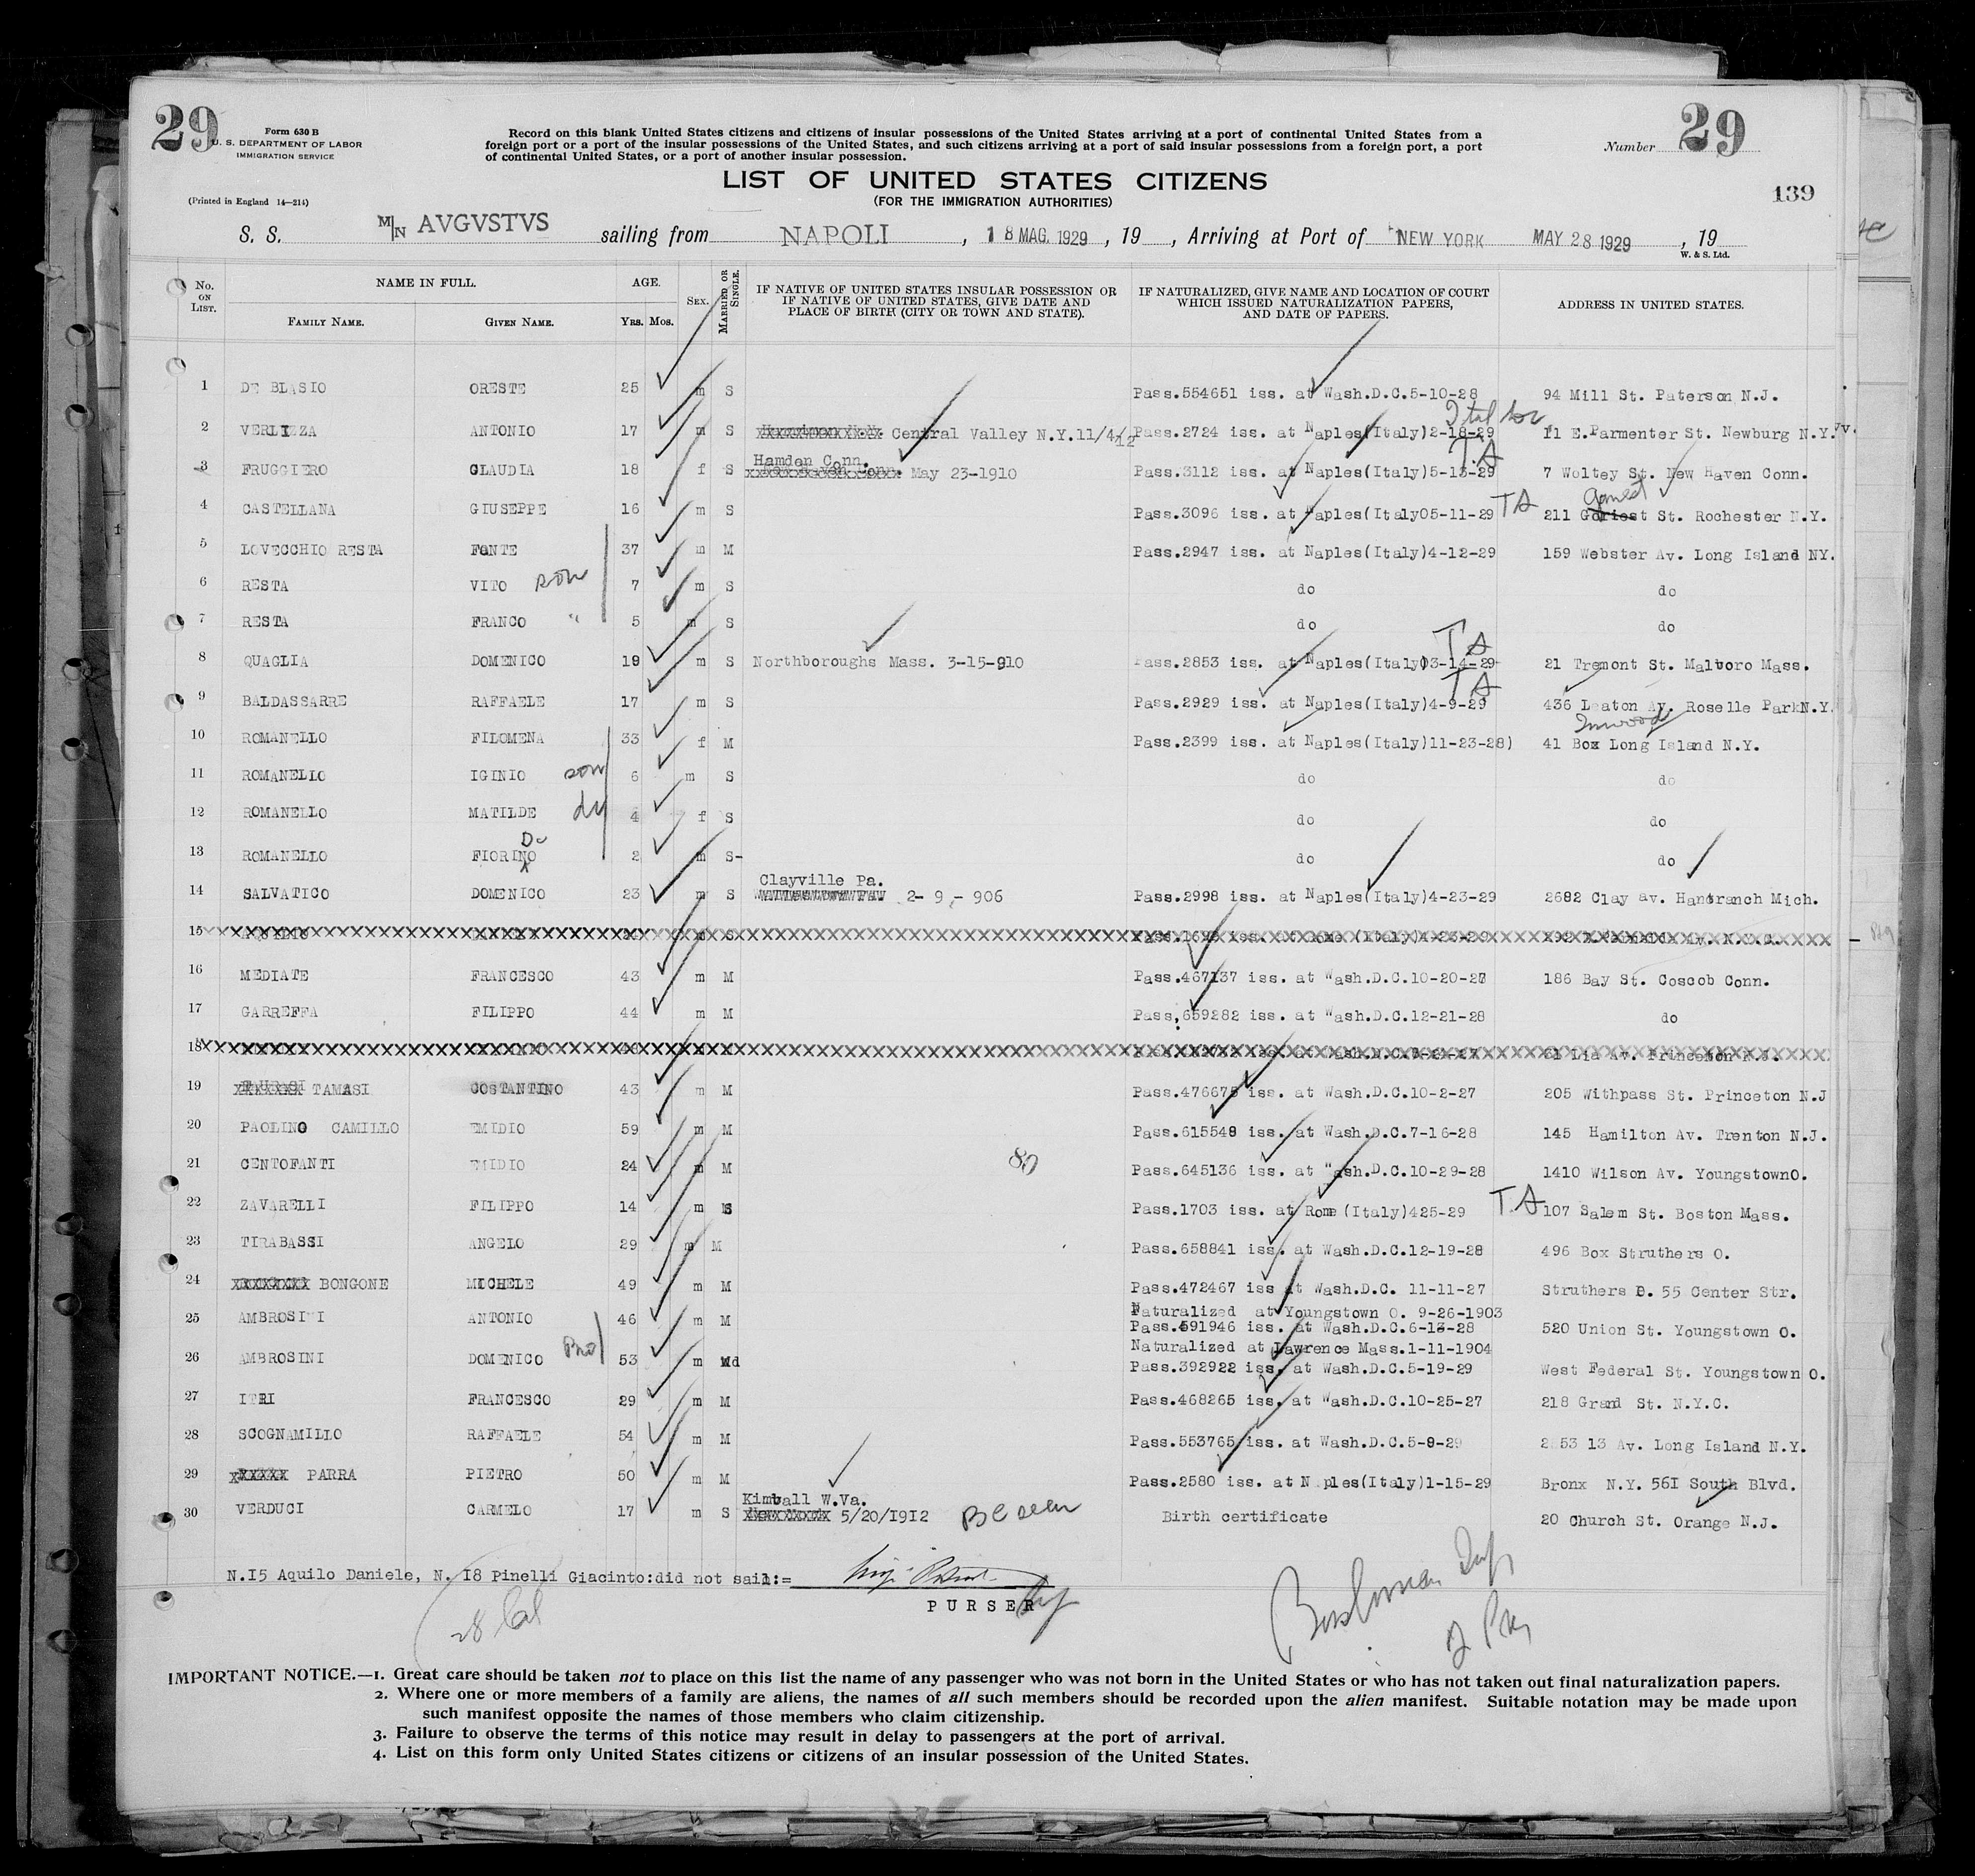 29
Form 630 B
U. S. DEPARTMENT OF LABOR
IMMIGRATION SERVICE
(Printed in England 14—214)
Record on this blank United States citizens and citizens of insular possessions of the United States arriving at a port of continental United States from a
foreign port or a port of the insular possessions of the United States, and such citizens arriving at a port of said insular possessions from a foreign port, a port
of continental United States, or a port of another insular possession.
Number 29
LIST OF UNITED STATES CITIZENS
(FOR THE IMMIGRATION AUTHORITIES)
139
S. S. M/N AVGVSTVS sailing from NAPOLI , 18 MAG. 1929 , 19 , Arriving at Port of NEW YORK MAY 28 1929 , 19
W. & S. Ltd.
No. ON LIST. NAME IN FULL. FAMILY NAME. GIVEN NAME. AGE. YRS. MOS. SEX. MARRIED OR SINGLE. IF NATIVE OF UNITED STATES INSULAR POSSESSION OR IF NATIVE OF UNITED STATES, GIVE DATE AND PLACE OF BIRTH (CITY OR TOWN AND STATE). IF NATURALIZED, GIVE NAME AND LOCATION OF COURT WHICH ISSUED NATURALIZATION PAPERS, AND DATE OF PAPERS. ADDRESS IN UNITED STATES.
1 DE BLASIO ORESTE 25 m S Pass.554651 iss. at Wash.D.C.5-10-28 94 Mill St. Paterson N.J.
2 VERLIZZA ANTONIO 17 m S Central Valley N.Y.11/4/12 Pass.2724 iss. at Naples(Italy)2-18-29 11 E.Parmenter St. Newburg N.Y.
3 FRUGGIERO GLAUDIA 18 f S Hamden Conn. May 23-1910 Pass.3112 iss. at Naples(Italy)5-13-29 T.A 7 Woltey St. New Haven Conn.
4 CASTELLANA GIUSEPPE 16 m S Pass.3096 iss. at Naples(Italy05-11-29 TA 211 St. Rochester N.Y.
5 LOVECCHIO RESTA FONTE 37 m M Pass.2947 iss. at Naples(Italy)4-12-29 159 Webster Av. Long Island NY.
6 RESTA VITO son 7 m S do do
7 RESTA FRANCO " 5 m S do do
8 QUAGLIA DOMENICO 19 m S Northboroughs Mass. 3-15-910 Pass.2853 iss. at Naples(Italy)03-14-29 TA 21 Tremont St. Malboro Mass.
9 BALDASSARRE RAFFAELE 17 m S Pass.2929 iss. at Naples(Italy)4-9-29 TA 436 Leaton Av. Roselle ParkN.Y.
10 ROMANELLO FILOMENA 33 f M Pass.2399 iss. at Naples(Italy)11-23-28) 41 Box Inwood Long Island N.Y.
11 ROMANELLO IGINIO son 6 m S do do
12 ROMANELLO MATILDE 4 f S do do
13 ROMANELLO FIORINO 2 m S- do do
14 SALVATICO DOMENICO 23 m S Clayville Pa. 2- 9 - 906 Pass.2998 iss. at Naples(Italy)4-23-29 2682 Clay av. Hamtranch Mich.
15
16 MEDIATE FRANCESCO 43 m M Pass.467137 iss. at Wash.D.C.10-20-27 186 Bay St. Coscob Conn.
17 GARREFFA FILIPPO 44 m M Pass.659282 iss. at Wash.D.C.12-21-28 do
18
19 TAMASI COSTANTINO 43 m M Pass.476675 iss. at Wash.D.C.10-2-27 205 Withpass St. Princeton N.J
20 PAOLINO CAMILLO EMIDIO 59 m M Pass.615548 iss. at Wash.D.C.7-16-28 145 Hamilton Av. Trenton N.J.
21 CENTOFANTI EMIDIO 24 m M Pass.645136 iss. at Wash.D.C.10-29-28 1410 Wilson Av. YoungstownO.
22 ZAVARELLI FILIPPO 14 m S Pass.1703 iss. at Rome (Italy)425-29 T.A 107 Salem St. Boston Mass.
23 TIRABASSI ANGELO 29 m M Pass.658841 iss. at Wash.D.C.12-19-28 496 Box Struthers O.
24 BONGONE MICHELE 49 m M Pass.472467 iss at Wash.D.C. 11-11-27 Struthers B. 55 Center Str.
25 AMBROSINI ANTONIO 46 m M Naturalized at Youngstown O. 9-26-1903
Pass.591946 iss. at Wash.D.C.6-13-28 520 Union St. Youngstown O.
26 AMBROSINI DOMENICO Bro 53 m Wd Naturalized at Lawrence Mass.1-11-1904
Pass.392922 iss. at Wash.D.C.5-19-29 West Federal St. Youngstown O.
27 ITRI FRANCESCO 29 m M Pass.468265 iss. at Wash.D.C.10-25-27 218 Grand St. N.Y.C.
28 SCOGNAMILLO RAFFAELE 54 m M Pass.553765 iss. at Wash.D.C.5-8-29 2853 13 Av. Long Island N.Y.
29 PARRA PIETRO 50 m M Pass.2580 iss. at Naples(Italy)1-15-29 Bronx N.Y. 561 South Blvd.
30 VERDUCI CARMELO 17 m S Kimball W.Va. 5/20/1912 BC seen Birth certificate 20 Church St. Orange N.J.
N.15 Aquilo Daniele, N. 18 Pinelli Giacinto:did not sail:=
PURSER
IMPORTANT NOTICE.—1. Great care should be taken not to place on this list the name of any passenger who was not born in the United States or who has not taken out final naturalization papers.
2. Where one or more members of a family are aliens, the names of all such members should be recorded upon the alien manifest. Suitable notation may be made upon
such manifest opposite the names of those members who claim citizenship.
3. Failure to observe the terms of this notice may result in delay to passengers at the port of arrival.
4. List on this form only United States citizens or citizens of an insular possession of the United States.